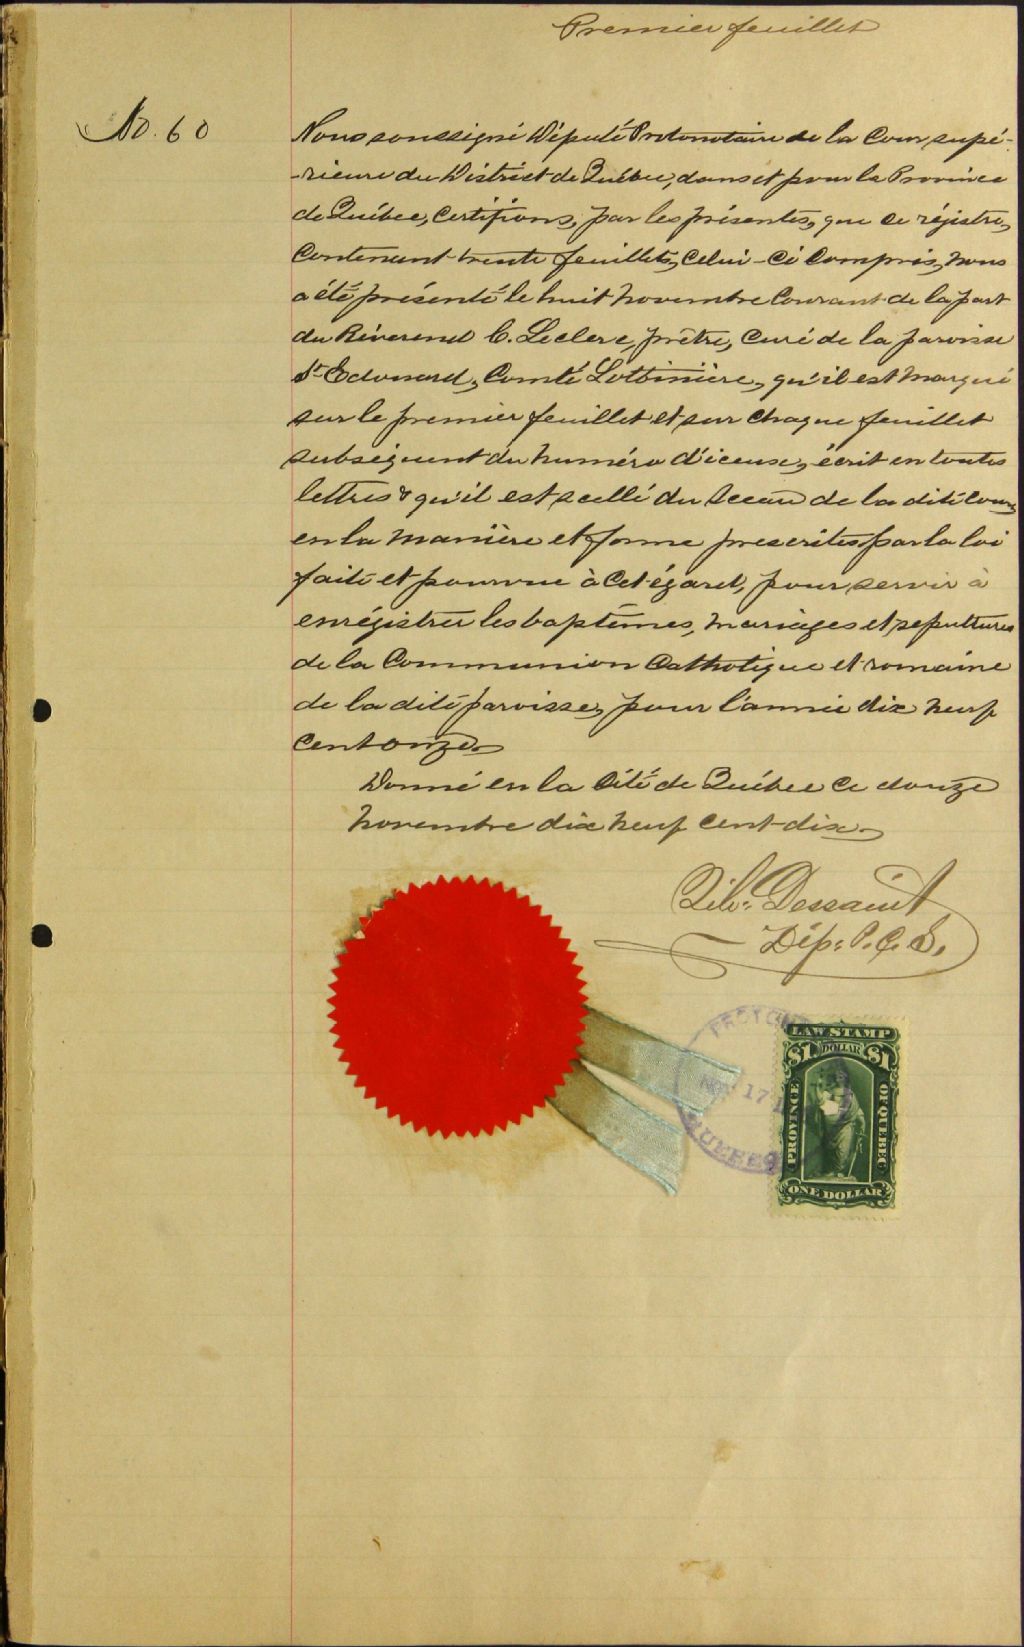 Premier feuillet
No. 60
Nous soussigné Député Protonotaire de la Cour supé-
-rieure du District de Québec, dans et pour la Province
de Québec, Certifions, par les présentes, que ce régistre,
contenant trente feuillets, celui-ci compris, nous
a été présenté le huit novembre courant de la part
du Révérend C. Leclerc, prêtre, curé de la paroisse
St Edouard, Comté Lotbinière, qu'il est marqué
sur le premier feuillet et sur chaque feuillet
subséquent du numéro d'icense, écrit en toutes
lettres & qu'il est scellé du sceau de la dite Cour,
en la manière et forme prescrites par la loi
faite et pourvue à cet égard, pour servir à
enrégistrer les baptêmes, mariages et sepultures
de la Communion Catholique et romaine
de la dite paroisse, pour l'année dix neuf
cent onze.
Donné en la Cité de Québec ce douze
novembre dix neuf cent dix.
Dessaint
Dép: P. C. S.
LAW STAMP
$1 DOLLAR $1
PROVINCE OF QUEBEC
ONE DOLLAR
NOV 17
QUEBEC